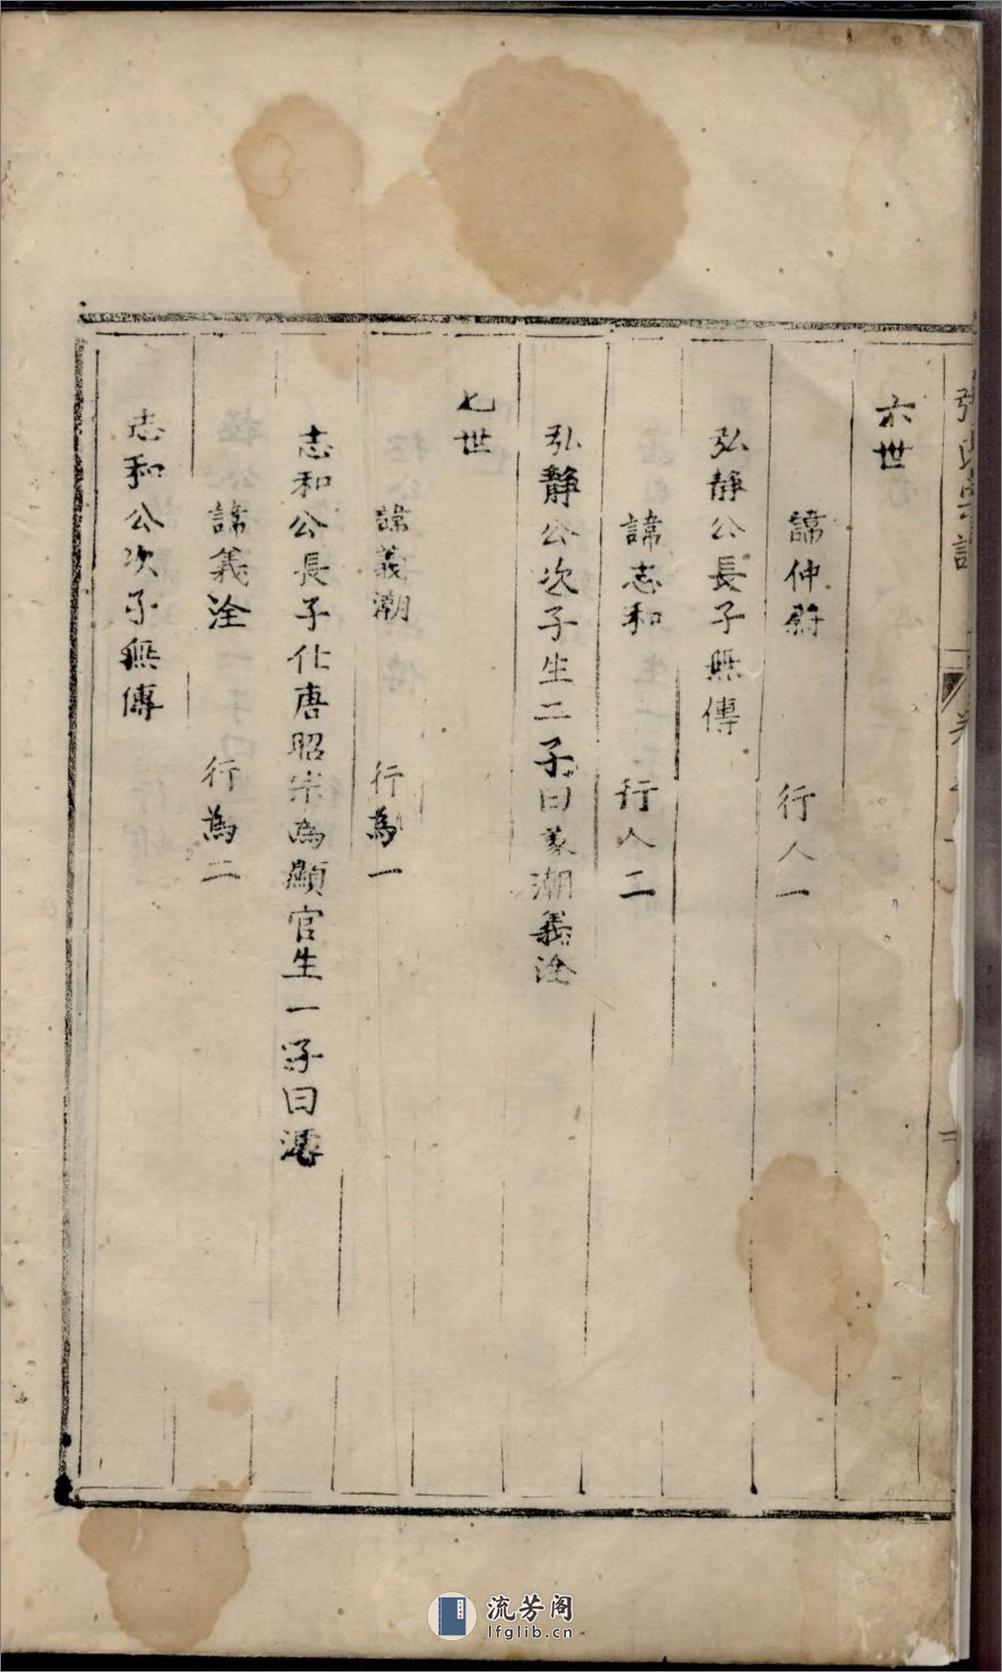 六世
諱仲蔚
行人一
弘靜公長子無傳
諱志和
行人二
弘靜公次子生二子曰義潮義淦
七世
諱義潮
行為一
志和公長子仕唐昭宗為顯官生一子曰
諱義淦
行為二
志和公次子無傳
流芳阁
lfglib.cn